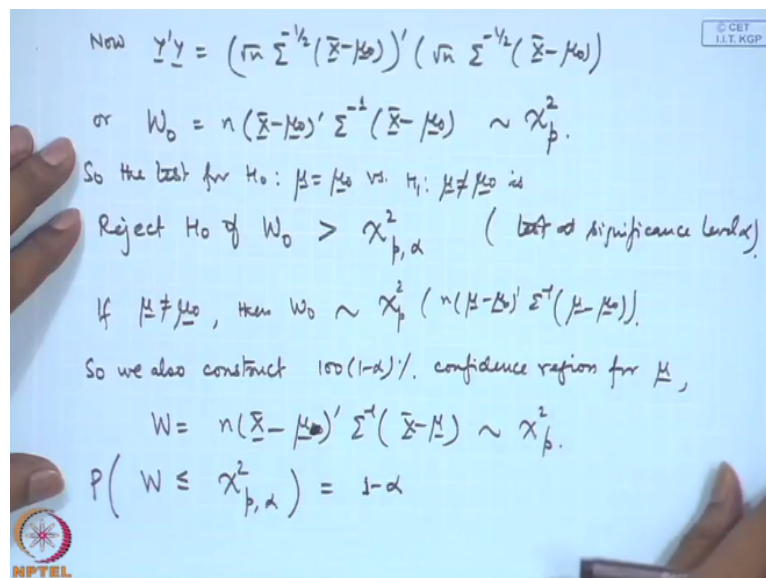 © CET
I.I.T. KGP
Now y'y = (√n Σ^{-1/2}(x̄-μ₀))' (√n Σ^{-1/2}(x̄-μ₀))
or W₀ = n(x̄-μ₀)' Σ^{-1}(x̄-μ₀) ~ χ²_p.
So the test for H₀: μ=μ₀ vs. H₁: μ≠μ₀ is
Reject H₀ if W₀ > χ²_{p,α} (test at significance level α).
If μ≠μ₀, then W₀ ~ χ²_p (n(μ-μ₀)' Σ^{-1}(μ-μ₀)).
So we also construct 100(1-α)%. confidence region for μ,
W = n(x̄-μ)' Σ^{-1}(x̄-μ) ~ χ²_p.
P(W ≤ χ²_{p,α}) = 1-α
NPTEL